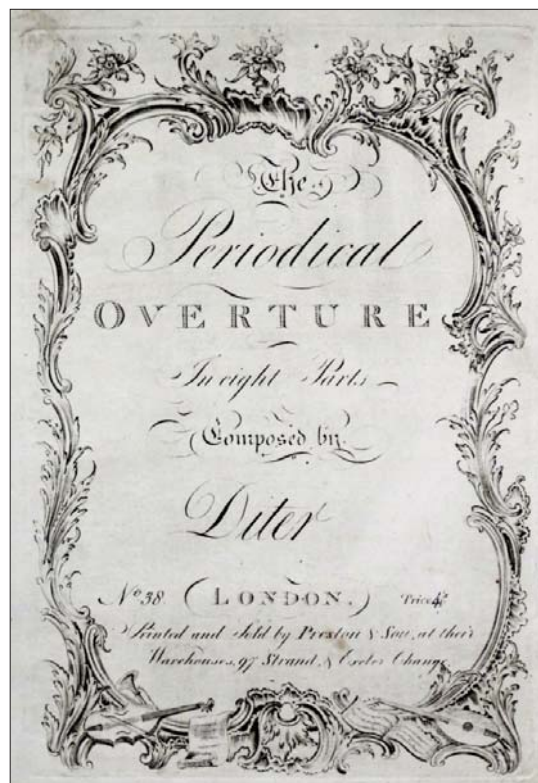 The
Periodical
OVERTURE
In eight Parts
Composed by
Diter
No. 38. (LONDON.) Price
Printed and Sold by Preston & Son, at their
Warehouses, 97 Strand, & Exeter Change